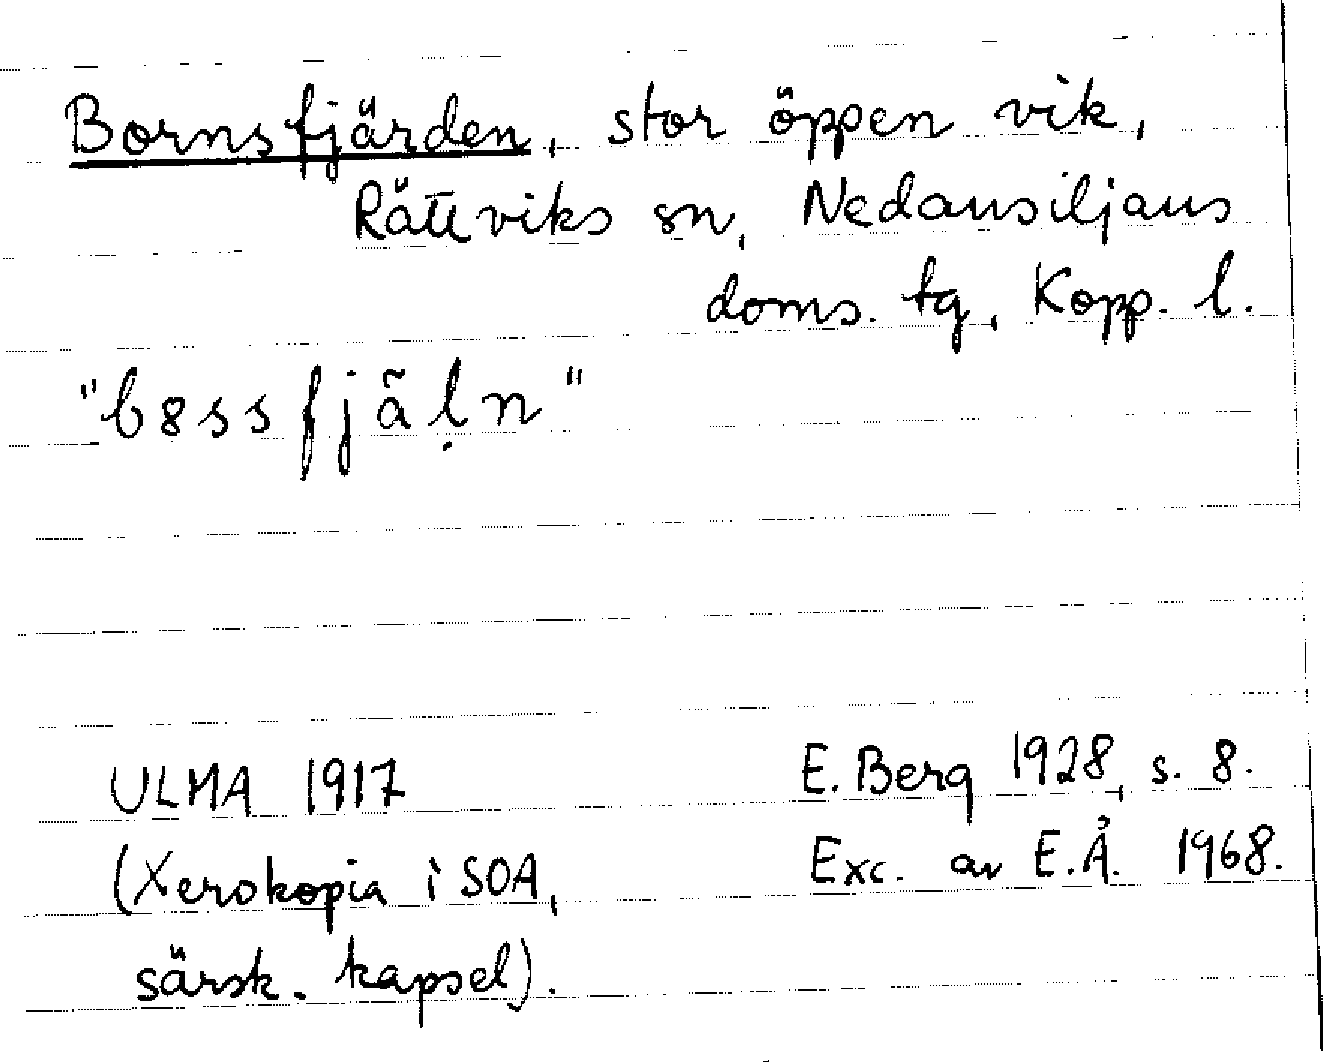 Bornsfjärden, stor öppen vik,
Rättviks sn, Nedansiljans
doms. tg, Kopp. l.
"b8ssfjã̈ḷn"
ULMA 1917 E. Berg 1928, s. 8.
(Xerokopia i SOA, Exc. av E.Å. 1968.
särsk. kapsel).